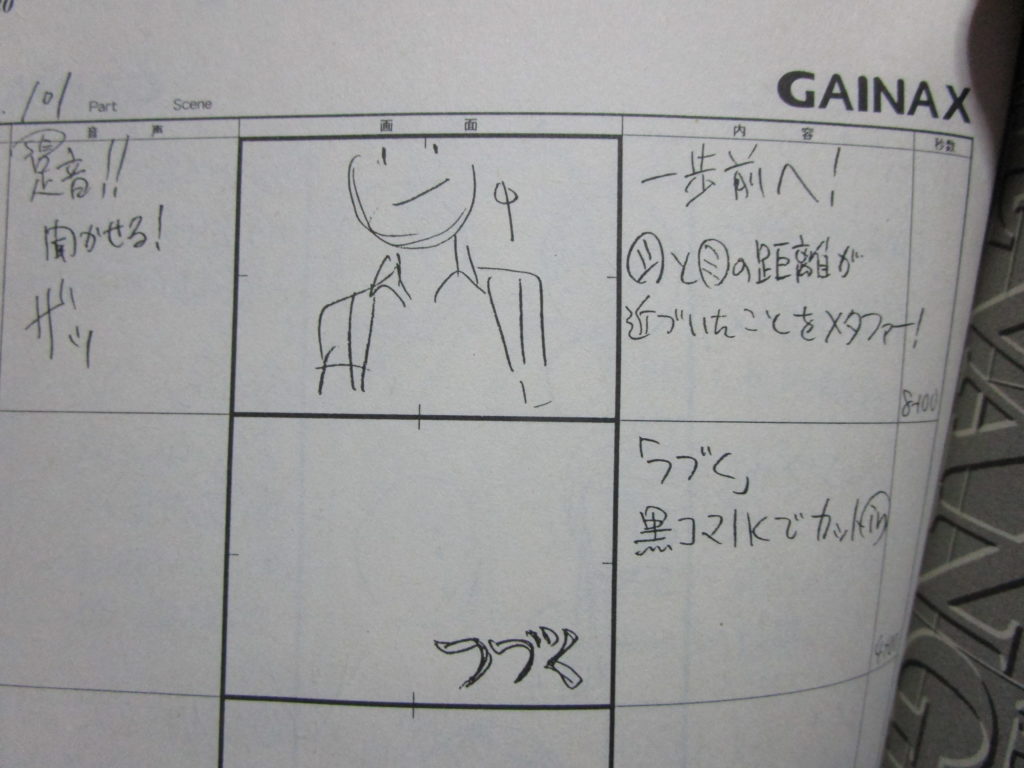 GAINAX
101 Part Scene
音声 画面 内容 秒数
足音!!
聞かせる!
ザッ
中
一歩前へ!
とⓔの距離が
近づいたことをメタファー!
8+00
「つづく」
黒コマ1Kでカットin
つづく